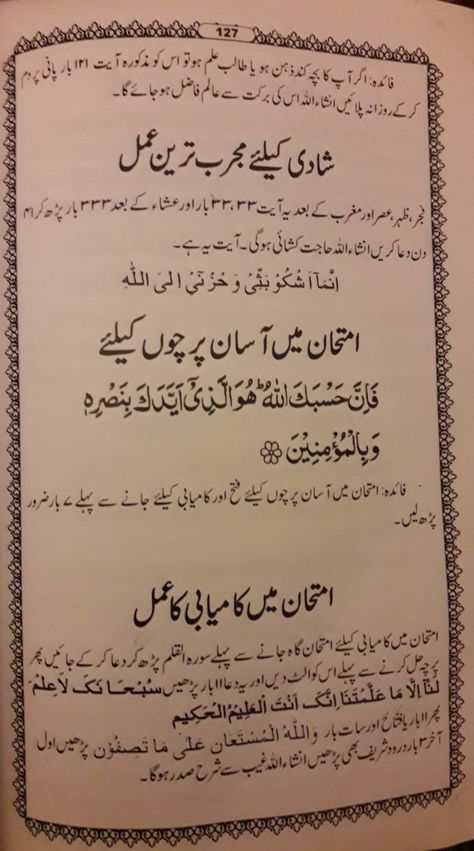 127
فائدہ: اگر آپ کا بچہ کند ذہن ہو یا طالب علم ہو تو اس کو مذکورہ آیت ۱۲۱ بار پانی پر دم
کر کے روزانہ پلائیں انشاء اللہ اس کی برکت سے عالم فاضل ہو جائے گا۔
شادی کیلئے مجرب ترین عمل
فجر، ظہر، عصر اور مغرب کے بعد یہ آیت ۳۳، ۳۳ بار اور عشاء کے بعد ۳۳۳ بار پڑھ کر ۴۱
دن دعا کریں انشاء اللہ حاجت کشائی ہوگی۔ آیت یہ ہے۔
اِنَّمَآ اَشْکُوْ بَثِّیْ وَ حُزْنِیْٓ اِلَی اللّٰہِ
امتحان میں آسان پرچوں کیلئے
فَاِنَّ حَسْبَكَ اللّٰهُ ؕ هُوَ الَّذِیْۤ اَیَّدَكَ بِنَصْرِهٖ
وَبِالْمُؤْمِنِیْنَ
فائدہ: امتحان میں آسان پرچوں کیلئے فتح اور کامیابی کیلئے جانے سے پہلے ۷ بار ضرور
پڑھ لیں۔
امتحان میں کامیابی کا عمل
امتحان میں کامیابی کیلئے امتحان گاہ جانے سے پہلے سورہ القلم پڑھ کر دعا کر کے جائیں پھر
پرچہ حل کرنے سے پہلے اس کو الٹ دیں اور یہ دعا ۱۱ بار پڑھیں سُبْحَا نَکَ لَاعِلْمَ
لَنَآ اِلَّا مَا عَلَّمْتَنَا اِنَّکَ اَنْتَ الْعَلِیْمُ الْحَکِیم
پھر ۱۱ بار یا فتاح اور سات بار وَاللّٰهُ الْمُسْتَعَانُ عَلٰی مَا تَصِفُوْن پڑھیں اول
آخر ۳ بار درود شریف بھی پڑھیں انشاء اللہ غیب سے شرح صدر ہو گا۔